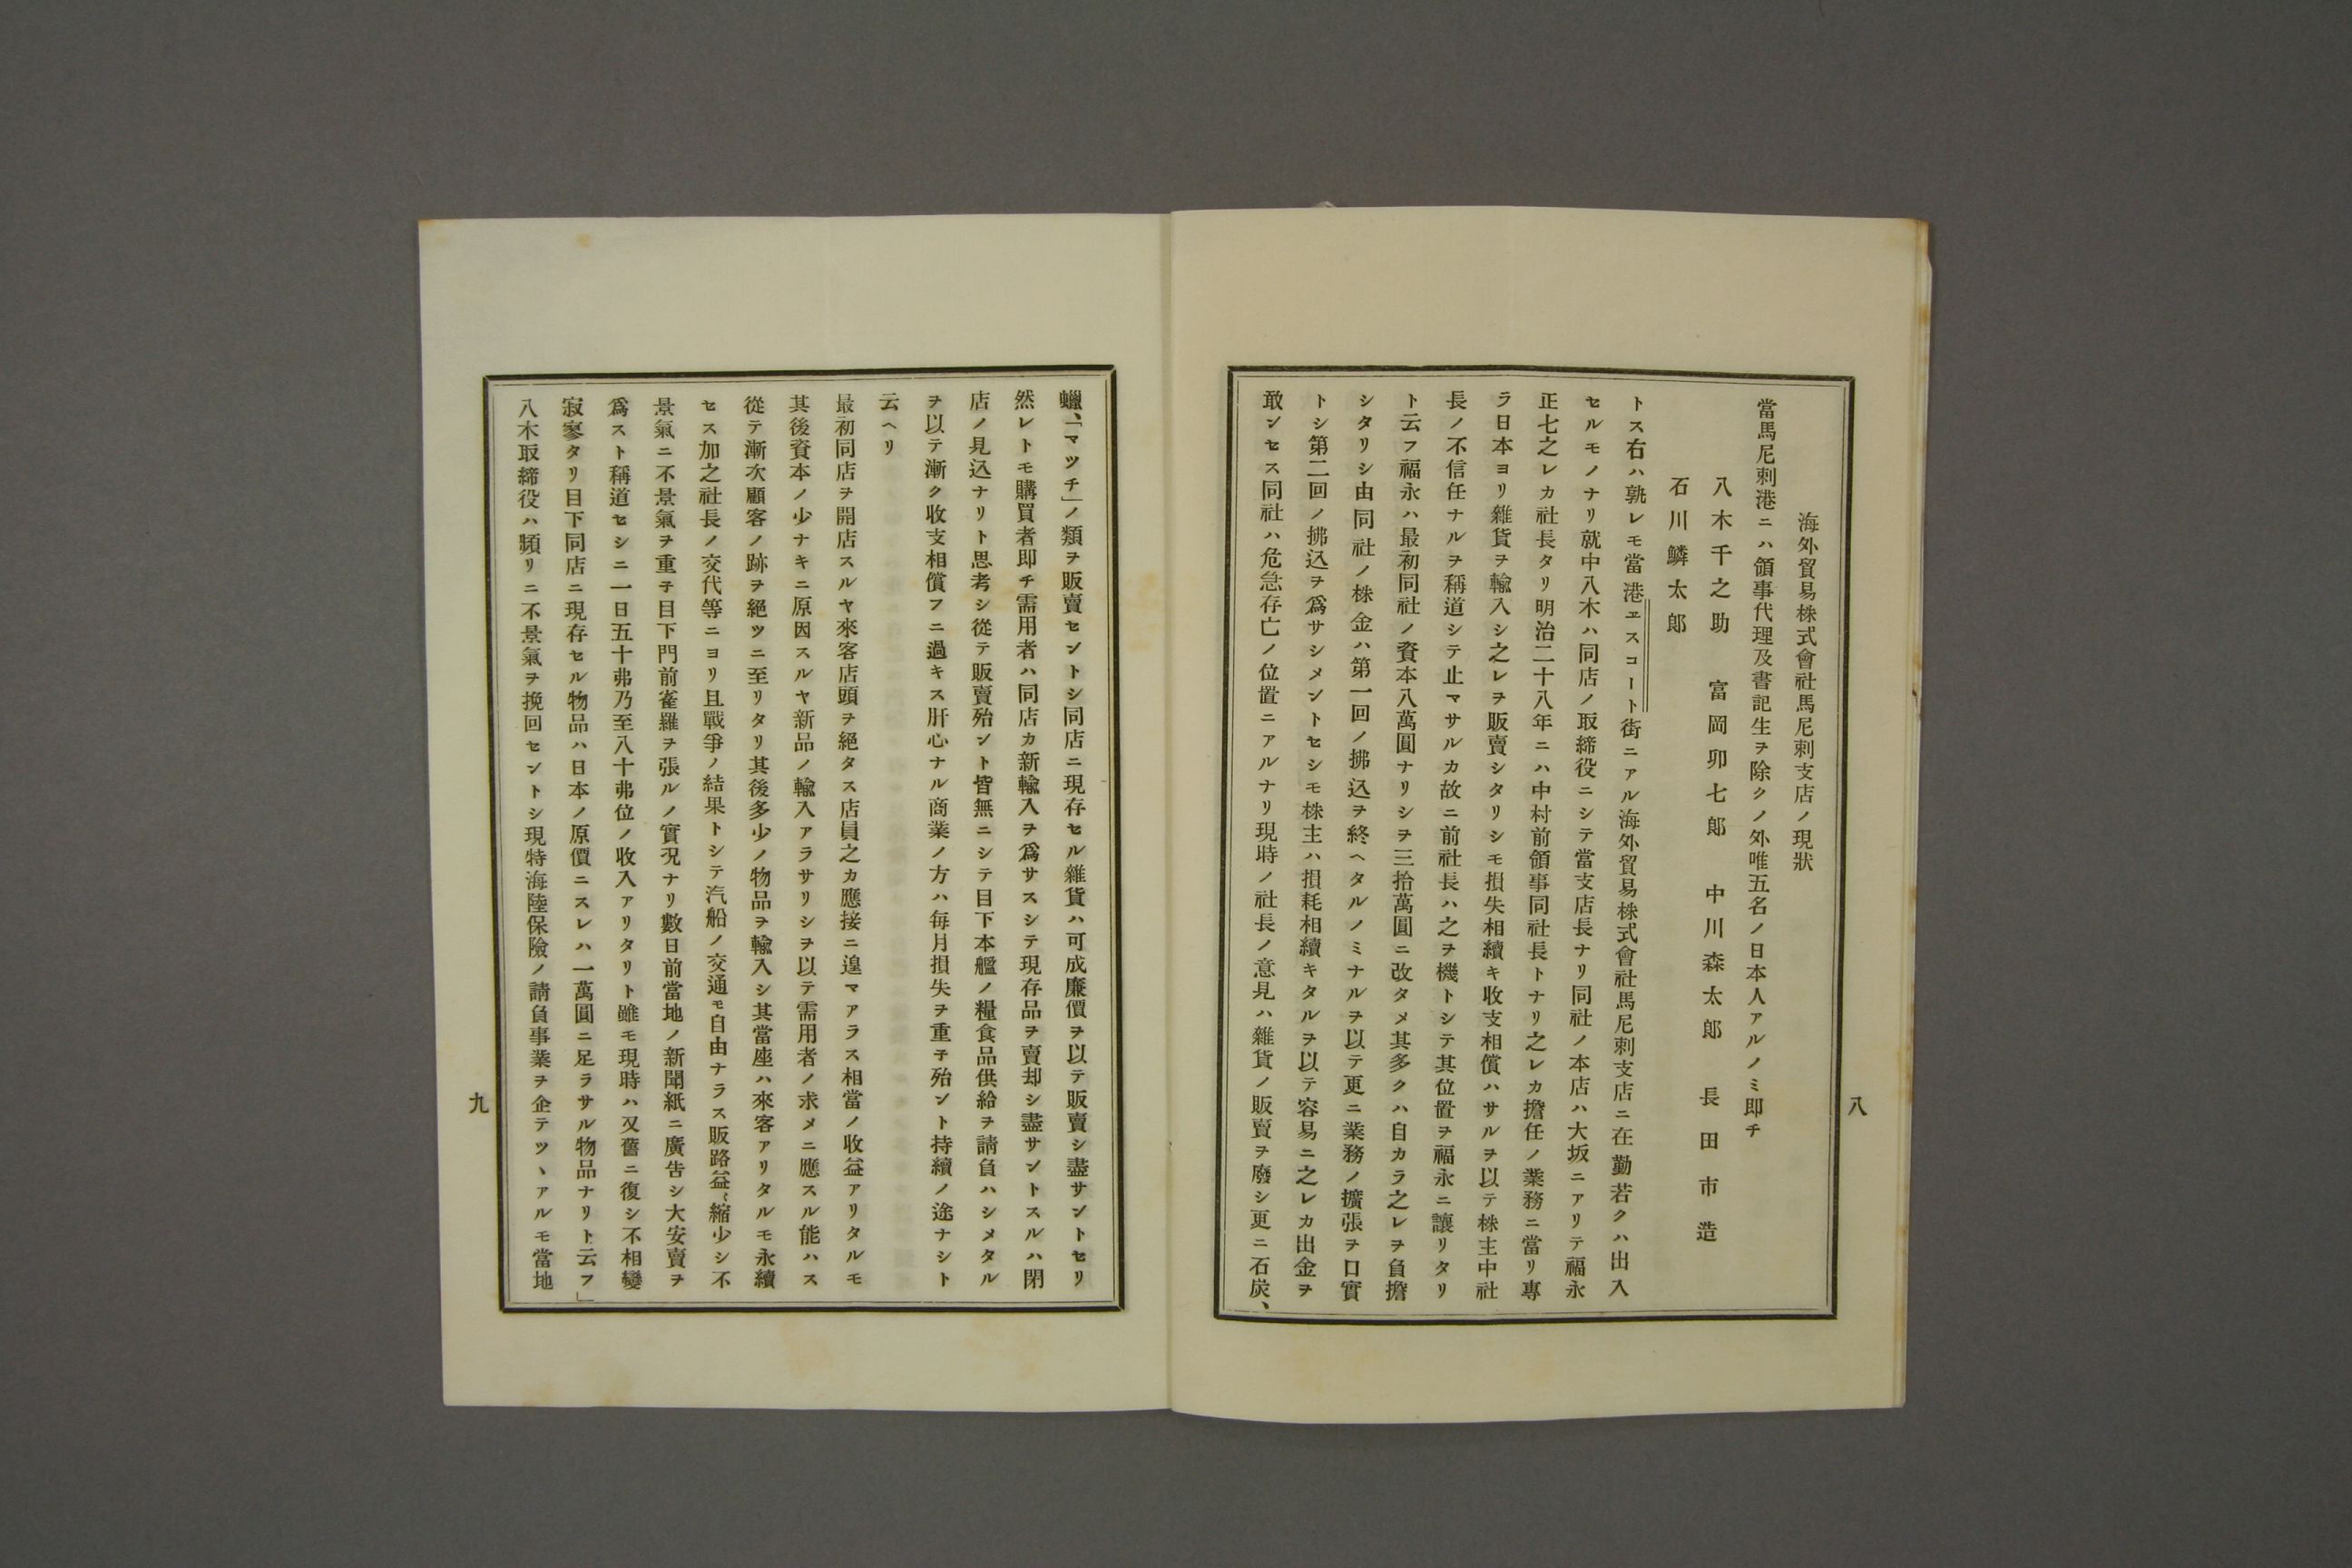 八
海外貿易株式會社馬尼剌支店ノ現狀
當馬尼剌港ニハ領事代理及書記生ヲ除クノ外唯五名ノ日本人アルノミ即チ
八木千之助　富岡卯七郎　中川森太郎　長田市造
石川鱗太郎
トス右ハ孰レモ當港ヱスコート街ニアル海外貿易株式會社馬尼剌支店ニ在勤若クハ出入
セルモノナリ就中八木ハ同店ノ取締役ニシテ當支店長ナリ同社ノ本店ハ大坂ニアリテ福永
正七之レカ社長タリ明治二十八年ニハ中村前領事同社長トナリ之レカ擔任ノ業務ニ當リ專
ラ日本ヨリ雜貨ヲ輸入シ之レヲ販賣シタリシモ損失相續キ收支相償ハサルヲ以テ株主中社
長ノ不信任ナルヲ稱道シテ止マサルカ故ニ前社長ハ之ヲ機トシテ其位置ヲ福永ニ讓リタリ
ト云フ福永ハ最初同社ノ資本八萬圓ナリシヲ三拾萬圓ニ改タメ其多クハ自カラ之レヲ負擔
シタリシ由同社ノ株金ハ第一回ノ拂込ヲ終ヘタルノミナルヲ以テ更ニ業務ノ擴張ヲ口實
トシ第二回ノ拂込ヲ爲サシメントセシモ株主ハ損耗相續キタルヲ以テ容易ニ之レカ出金ヲ
敢ンセス同社ハ危急存亡ノ位置ニアルナリ現時ノ社長ノ意見ハ雜貨ノ販賣ヲ廢シ更ニ石炭、
蠟、「マツチ」ノ類ヲ販賣セントシ同店ニ現存セル雜貨ハ可成廉價ヲ以テ販賣シ盡サントセリ
然レトモ購買者即チ需用者ハ同店カ新輸入ヲ爲サスシテ現存品ヲ賣却シ盡サントスルハ閉
店ノ見込ナリト思考シ從テ販賣殆ント皆無ニシテ目下本艦ノ糧食品供給ヲ請負ハシメタル
ヲ以テ漸ク收支相償フニ過キス肝心ナル商業ノ方ハ每月損失ヲ重子殆ント持續ノ途ナシト
云ヘリ
最初同店ヲ開店スルヤ來客店頭ヲ絕タス店員之カ應接ニ遑マアラス相當ノ收益アリタルモ
其後資本ノ少ナキニ原因スルヤ新品ノ輸入アラサリシヲ以テ需用者ノ求メニ應スル能ハス
從テ漸次顧客ノ跡ヲ絕ツニ至リタリ其後多少ノ物品ヲ輸入シ其當座ハ來客アリタルモ永續
セス加之社長ノ交代等ニヨリ且戰爭ノ結果トシテ汽船ノ交通モ自由ナラス販路益〻縮少シ不
景氣ニ不景氣ヲ重子目下門前雀羅ヲ張ルノ實況ナリ數日前當地ノ新聞紙ニ廣告シ大安賣ヲ
爲スト稱道セシニ一日五十弗乃至八十弗位ノ收入アリタリト雖モ現時ハ又舊ニ復シ不相變
寂寥タリ目下同店ニ現存セル物品ハ日本ノ原價ニスレハ一萬圓ニ足ラサル物品ナリト云フ」
八木取締役ハ頻リニ不景氣ヲ挽回セントシ現特海陸保險ノ請負事業ヲ企テツヽアルモ當地
九